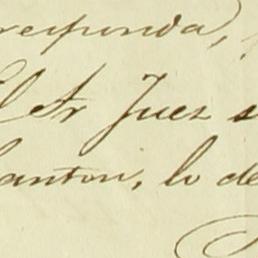 responda,
El Sr Juez s
Canton, lo de